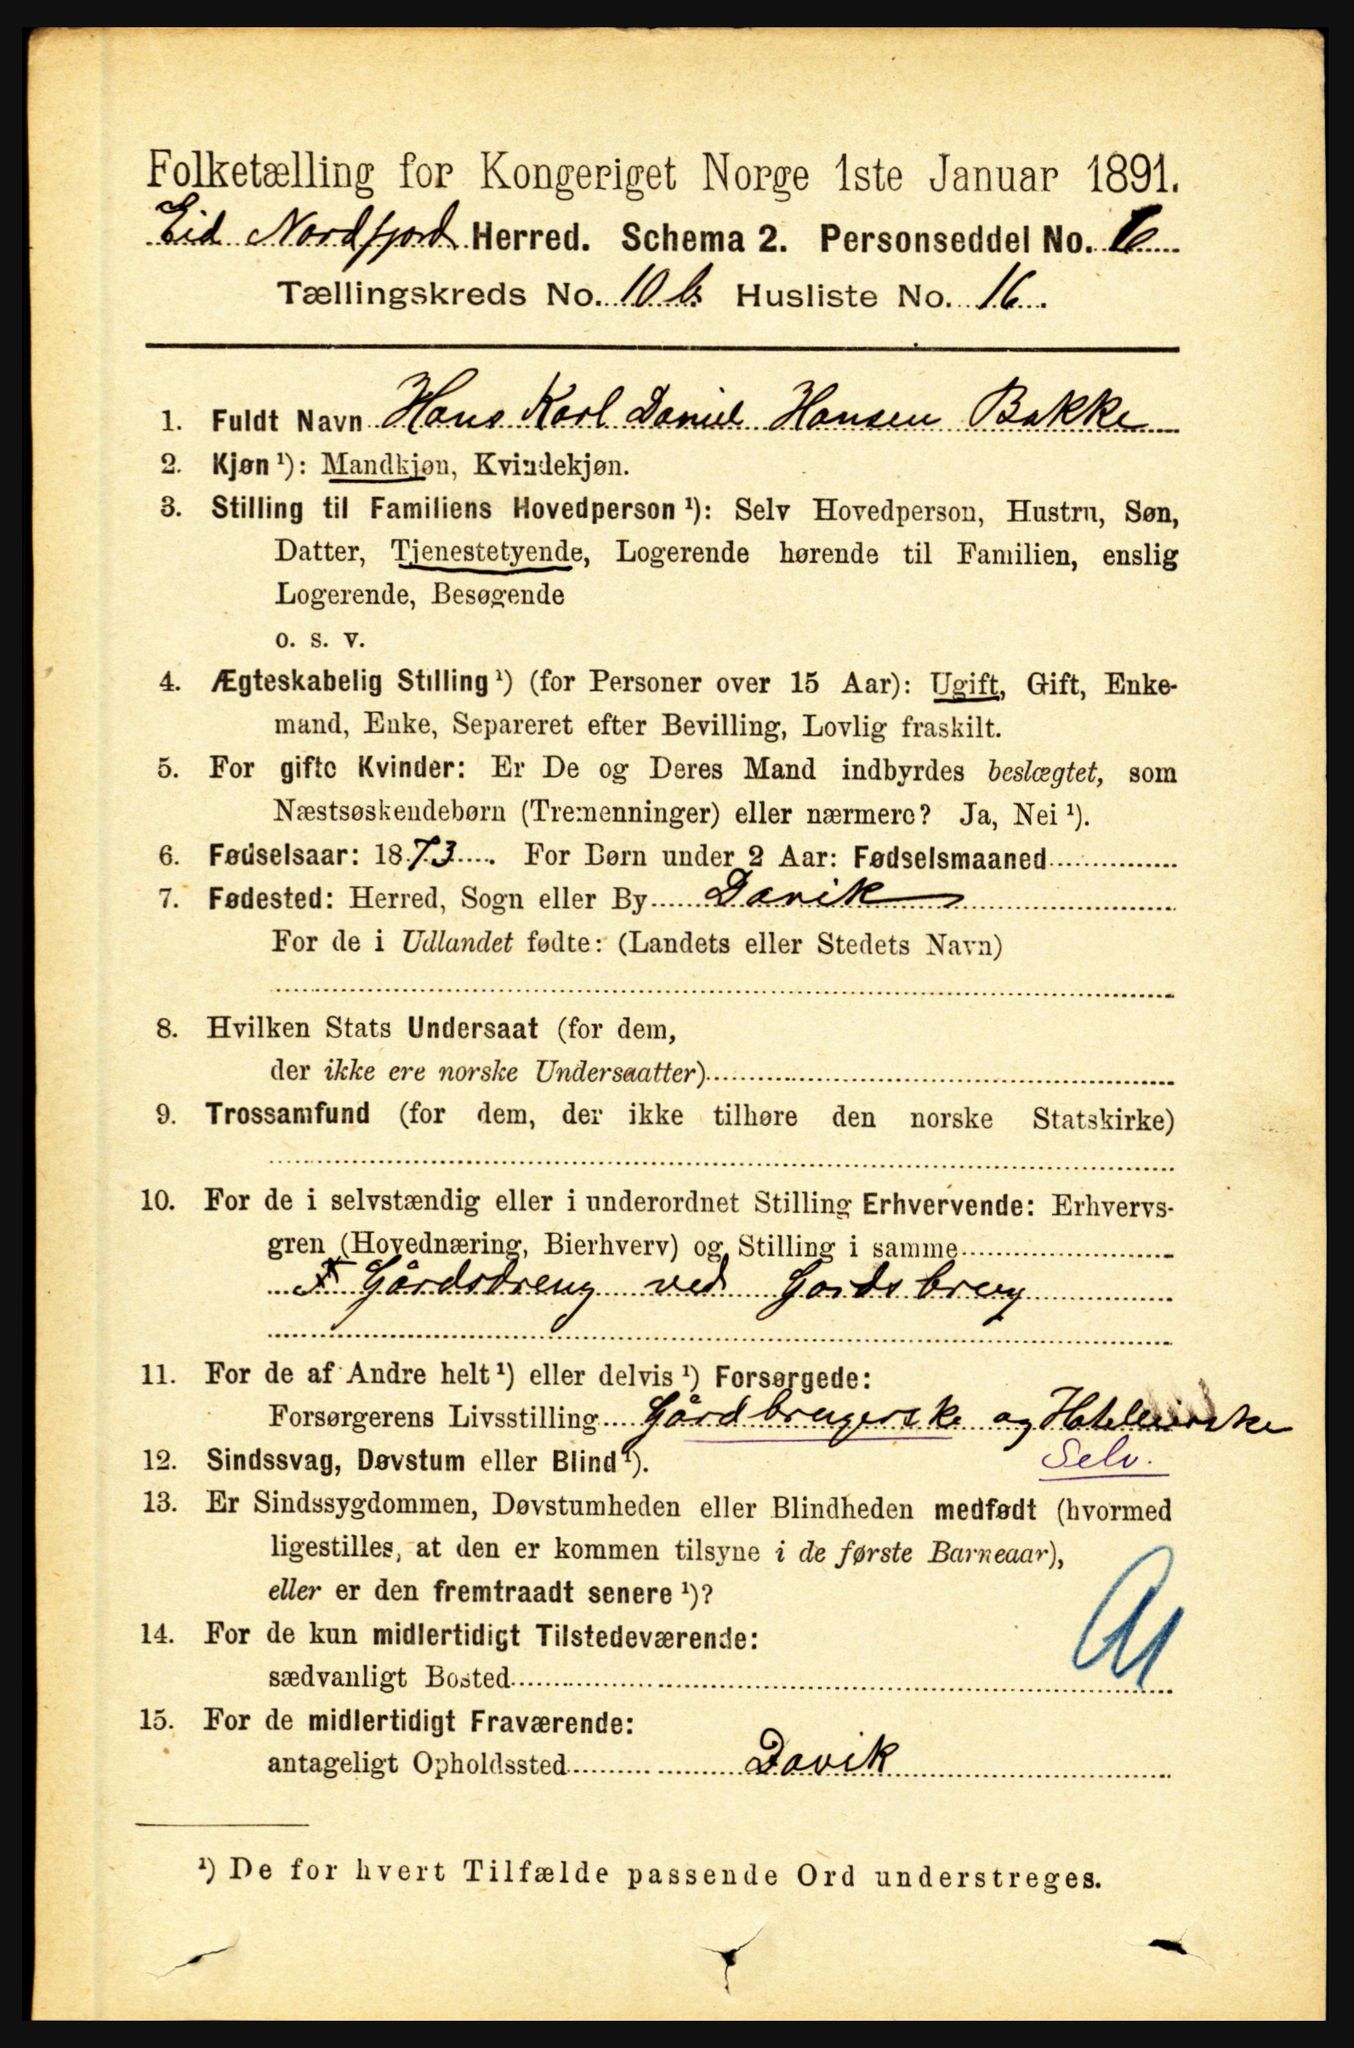 Folketælling for Kongeriget Norge 1ste Januar 1891.
Eid Nordfjord Herred. Schema 2. Personseddel No. 6
Tællingskreds No. 10 b Husliste No. 16.
1. Fuldt Navn Hans Karl Daniel Hansen Bakke
2. Kjøn ¹): Mandkjøn, Kvindekjøn.
3. Stilling til Familiens Hovedperson ¹): Selv Hovedperson, Hustru, Søn,
Datter, Tjenestetyende, Logerende hørende til Familien, enslig
Logerende, Besøgende
o. s. v.
4. Ægteskabelig Stilling ¹) (for Personer over 15 Aar): Ugift, Gift, Enke-
mand, Enke, Separeret efter Bevilling, Lovlig fraskilt.
5. For gifte Kvinder: Er De og Deres Mand indbyrdes beslægtet, som
Næstsøskendebørn (Tremenninger) eller nærmere? Ja, Nei ¹).
6. Fødselsaar: 1873. For Børn under 2 Aar: Fødselsmaaned
7. Fødested: Herred, Sogn eller By Davik
For de i Udlandet fødte: (Landets eller Stedets Navn)
8. Hvilken Stats Undersaat (for dem,
der ikke ere norske Undersaatter)
9. Trossamfund (for dem, der ikke tilhøre den norske Statskirke)
10. For de i selvstændig eller i underordnet Stilling Erhvervende: Erhvervs-
gren (Hovednæring, Bierhverv) og Stilling i samme
Gårdsdreng ved Gardsbrug
11. For de af Andre helt ¹) eller delvis ¹) Forsørgede:
Forsørgerens Livsstilling Gårdbrugerske og Hotelværtske
12. Sindssvag, Døvstum eller Blind ¹). Selv.
13. Er Sindssygdommen, Døvstumheden eller Blindheden medfødt (hvormed
ligestilles, at den er kommen tilsyne i de første Barneaar),
eller er den fremtraadt senere ¹)?
14. For de kun midlertidigt Tilstedeværende:
sædvanligt Bosted
15. For de midlertidigt Fraværende:
antageligt Opholdssted Davik
¹) De for hvert Tilfælde passende Ord understreges.